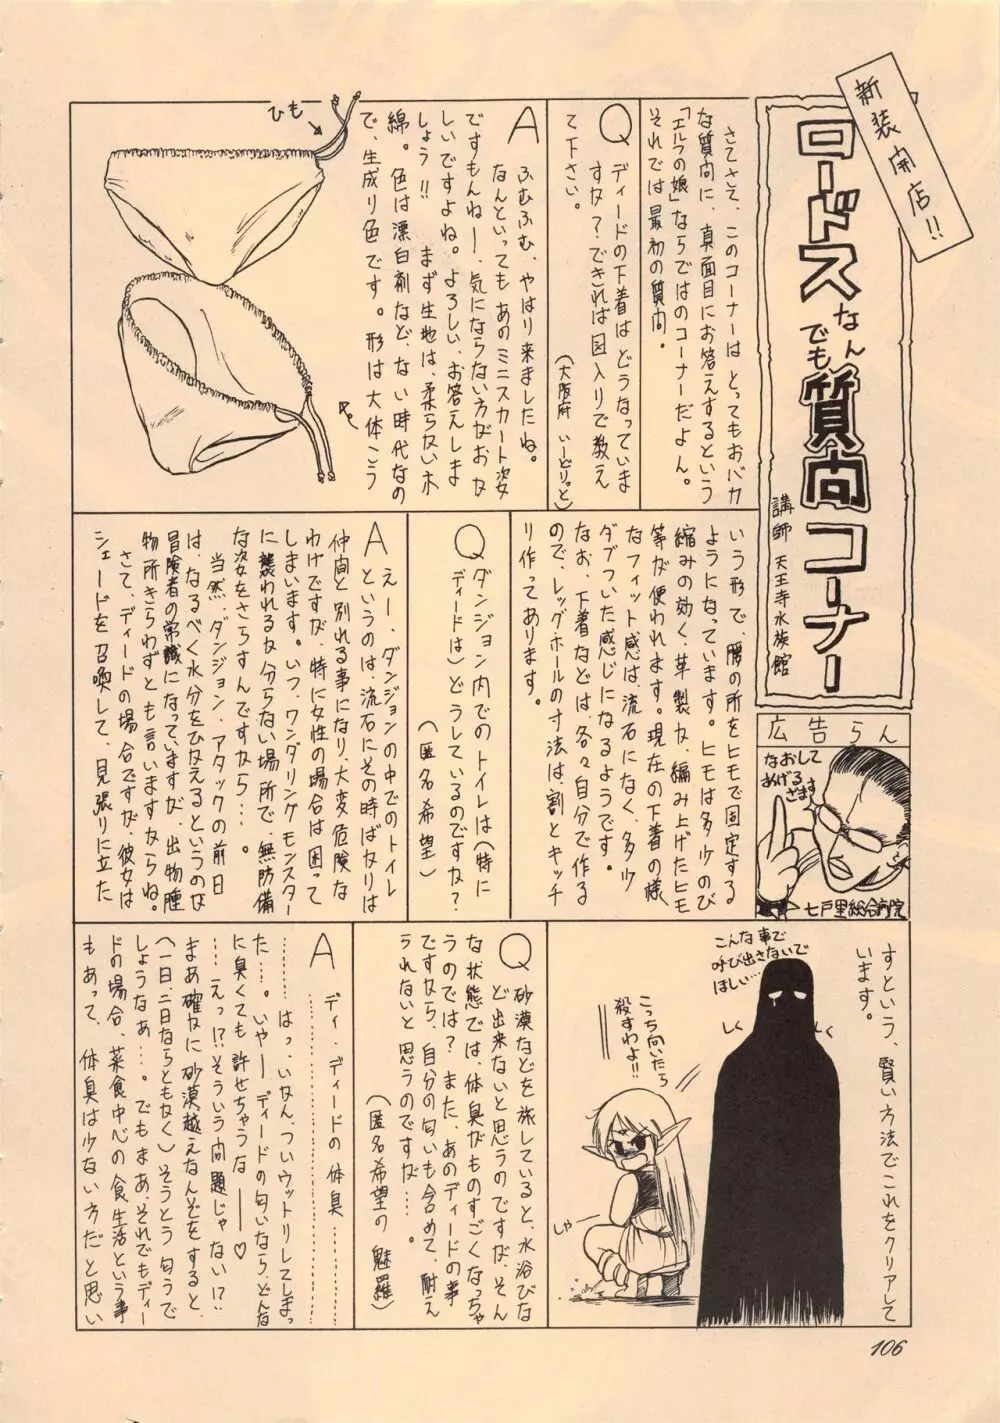 新装開店!!
ロードス
なん
でも
質問コーナー
講師 天王寺水族館
さてさそ、このコーナーは とってもおバカ
な質問に、真面目にお答えするという
「エルフの娘」ならではのコーナーだよん。
それでは最初の質問。
Q ディードの下着は どうなっていま
すか?できれば図入りで教え
て下さい。
(大阪府 いーどりっと)
A ふむふむ、やはり来ましたね。
なんといっても あのミニスカート姿
ですもんねー、気にならない方がおか
しいですよね。よろしい、お答えしま
しょう!! まず生地は、柔らかい木
綿。色は漂白剤など、ない時代なの
で、生成り色です。形は大体こう
ひも
いう形で、腰の所をヒモで固定する
ようになっています。ヒモは多少のび
縮みの効く、革製か、編み上げたヒモ
等が使われます。現在の下着の様
なフィット感は、流石になく、多少
ダブついた感じになるようです。
なお、下着などは 各々自分で作る
ので、レッグホールの寸法は、割とキッチ
リ作ってあります。
Q ダンジョン内でのトイレは(特に
ディードは)どうしているのですか?
(匿名希望)
A えー、ダンジョンの中でのトイレ
というのは、流石にその時ばかりは
仲間と別れる事になり、大変危険な
わけですが、特に女性の場合は困って
しまいます。いつ、ワンダリングモンスター
に襲われるか分らない場所で、無防備
な姿をさらすんですから…。
当然、ダンジョン、アタックの前日
は、なるべく水分をひかえるというのが
冒険者の常識になっていますが、出物腫
物所きらわずとも言いますからね。
さて、ディードの場合ですが、彼女は
シェードを召喚して、見張りに立た
広告らん
なおして
あげる
ざます
七戸里総合病院
すという、賢い方法でこれをクリアして
います。
こんな事で
呼び出さないで
ほしい…
しく
しく
こっち向いたら
殺すわよ!!
しゃー
Q 砂漠などを旅していると、水浴びな
ど出来ないと思うのですが、そん
な状態では、体臭がものすごくなっちゃ
うのでは?また、あのディードの事
ですから、自分の匂いも含めて、耐え
られないと思うのですが…。
(匿名希望の魅羅)
A ディ・ディードの 体臭………
……………………………………
……はっ、いかん、ついウットリしてしまっ
た…。いやーディードの匂いなら、どんな
に臭くても許せちゃうなーーー♡
…えっ!?そういう問題じゃない!?
まあ確かに砂漠越えなんぞをすると、
(一日、二日ならともかく)そうとう匂うで
しょうなぁ…。でもまあ、それでもディー
ドの場合、菜食中心の食生活という事
もあって、体臭は少ない方だと思い
106